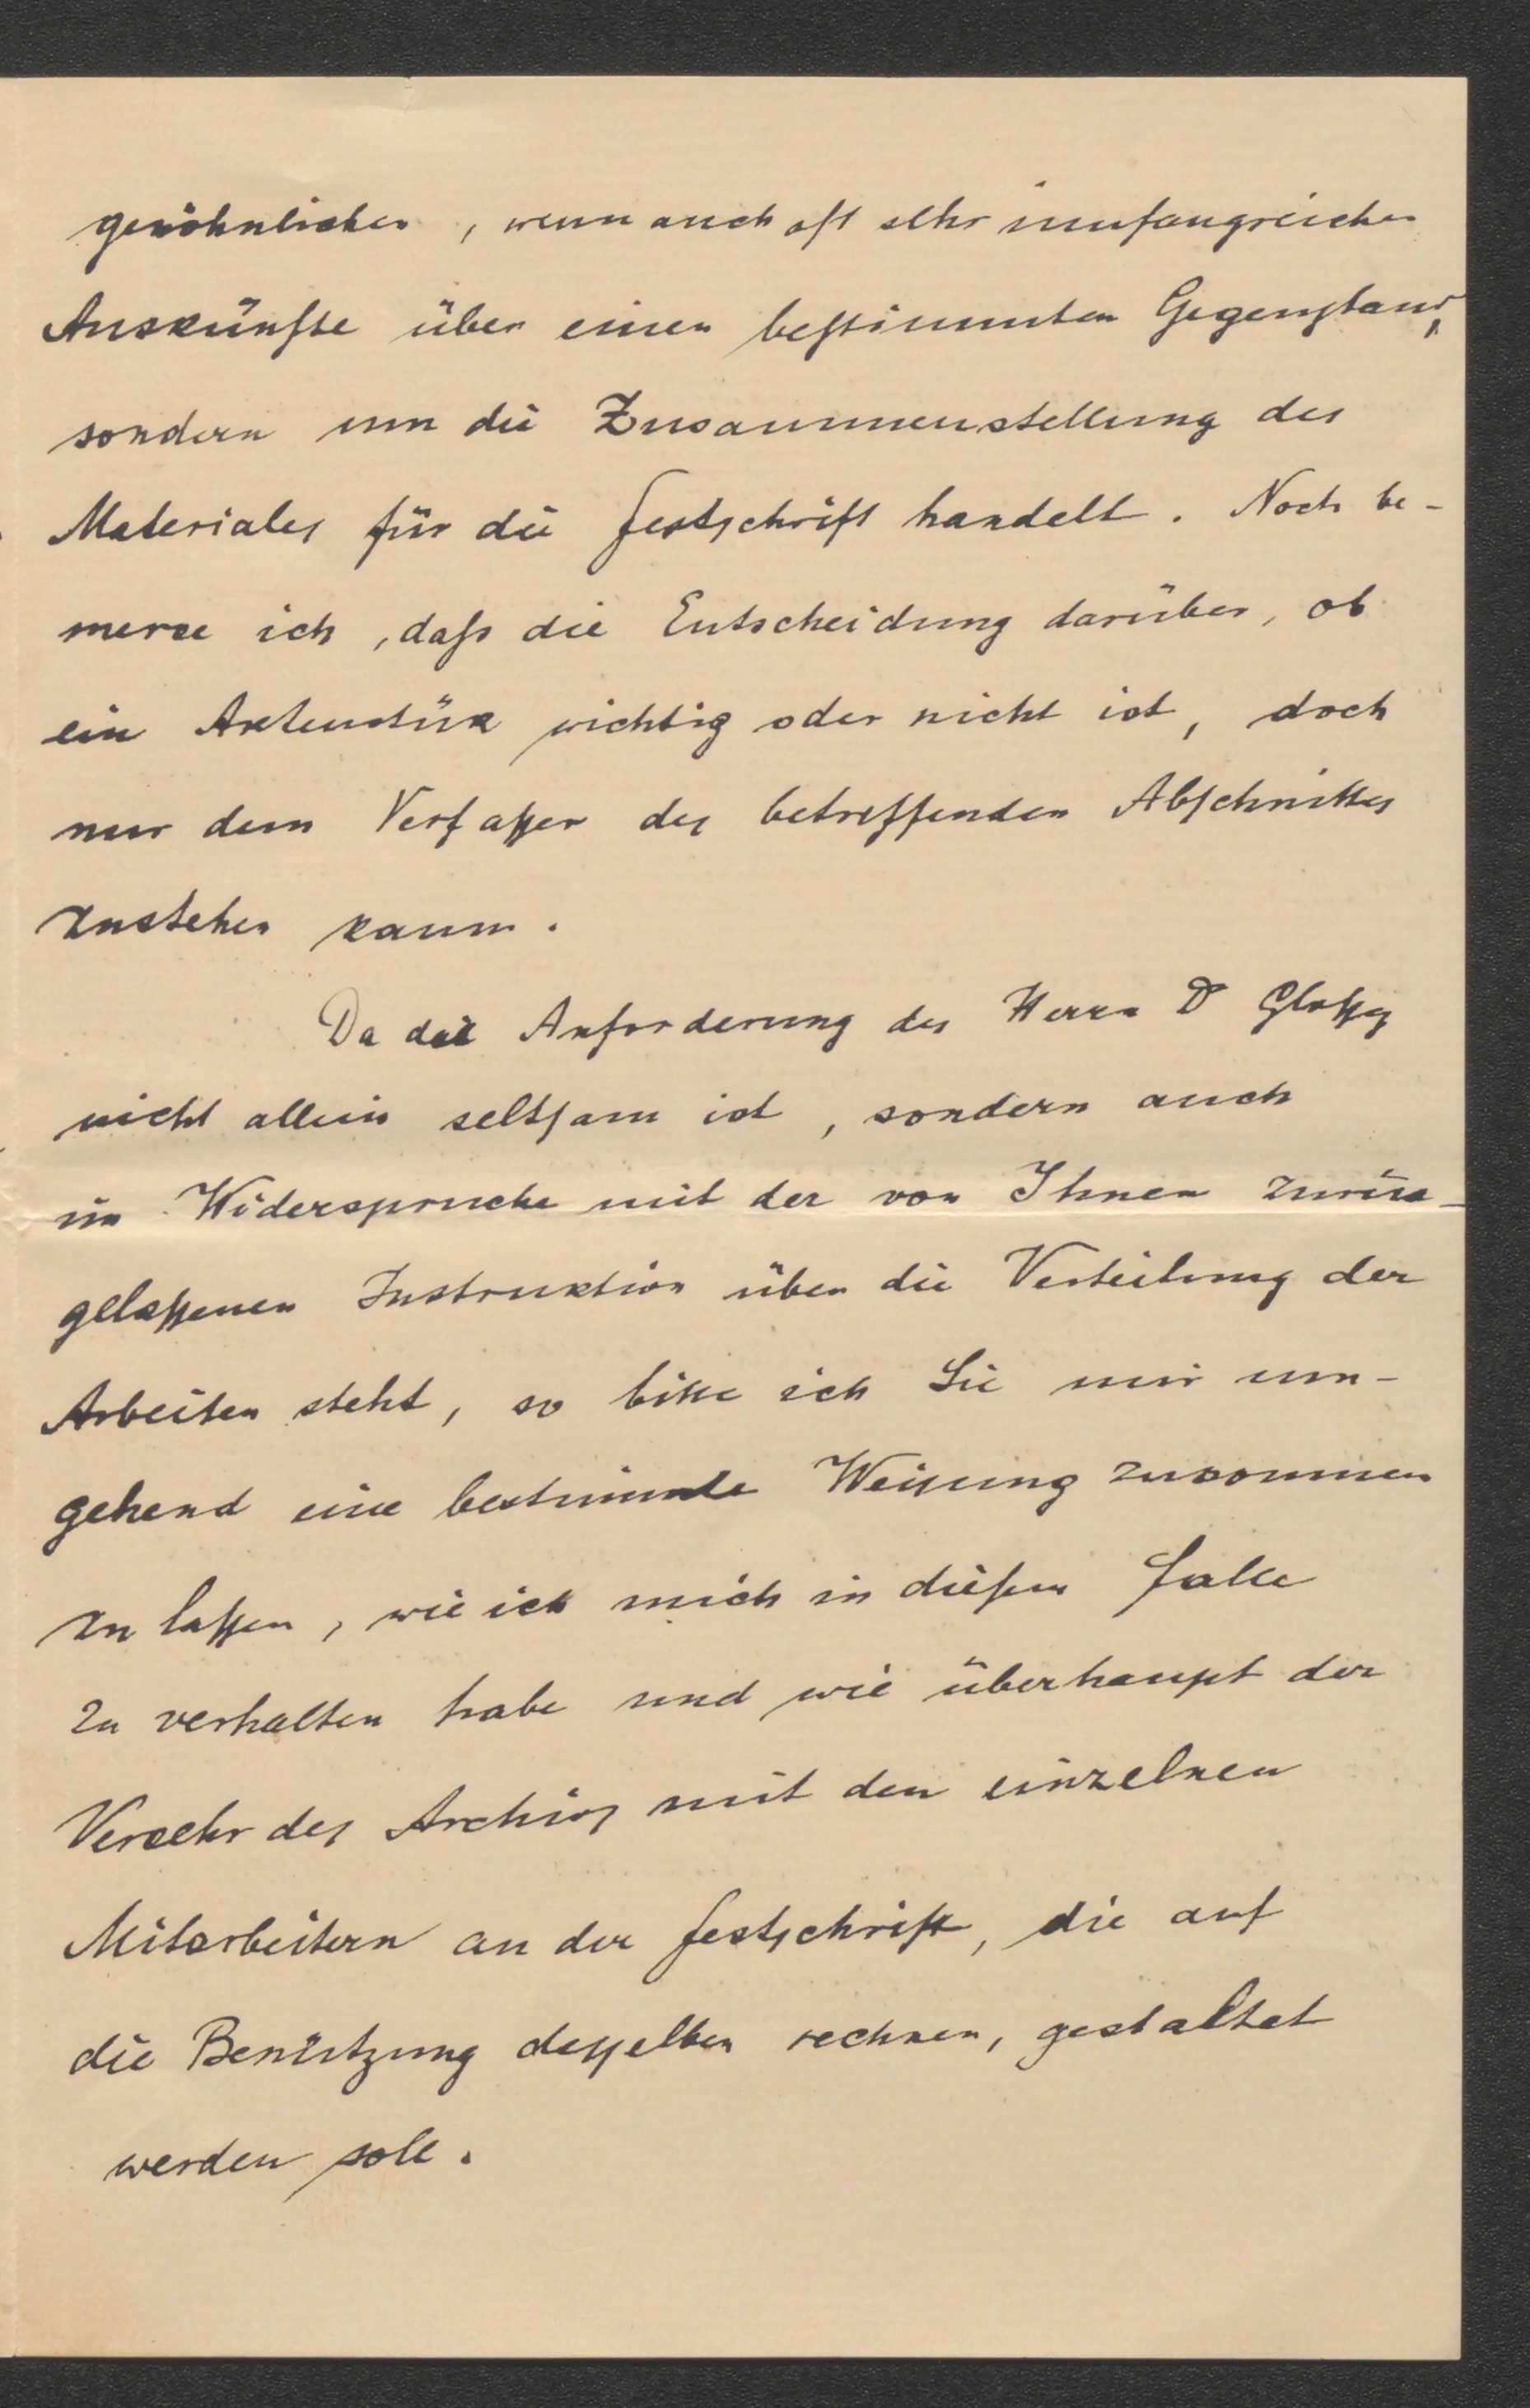 gewöhnlichen, wenn auch oft sehr umfangreichen
Auskünfte über einen bestimmten Gegenstand,
sondern um die Zusammenstellung des
Materiales für die Festschrift handelt. Noch be-
merke ich, daß die Entscheidung darüber, ob
ein Aktenstük wichtig oder nicht ist, doch
nur dem Verfaßer des betreffenden Abschnittes
zustehen kann.
Da die Anforderung des Herrn Dr Gloßy
nicht allein seltsam ist, sondern auch
im Widerspruche mit der von Ihnen zurük-
gelaßenen Instruktion über die Verteilung der
Arbeiten steht, so bitte ich Sie mir um-
gehend eine bestimmte Weisung zukommen
zu laßen, wie ich mich in diesem Falle
zu verhalten habe und wie überhaupt der
Verkehr des Archivs mit den einzelnen
Mitarbeitern an der Festschrift, die auf
die Benützung desselben rechnen, gestaltet
werden soll.